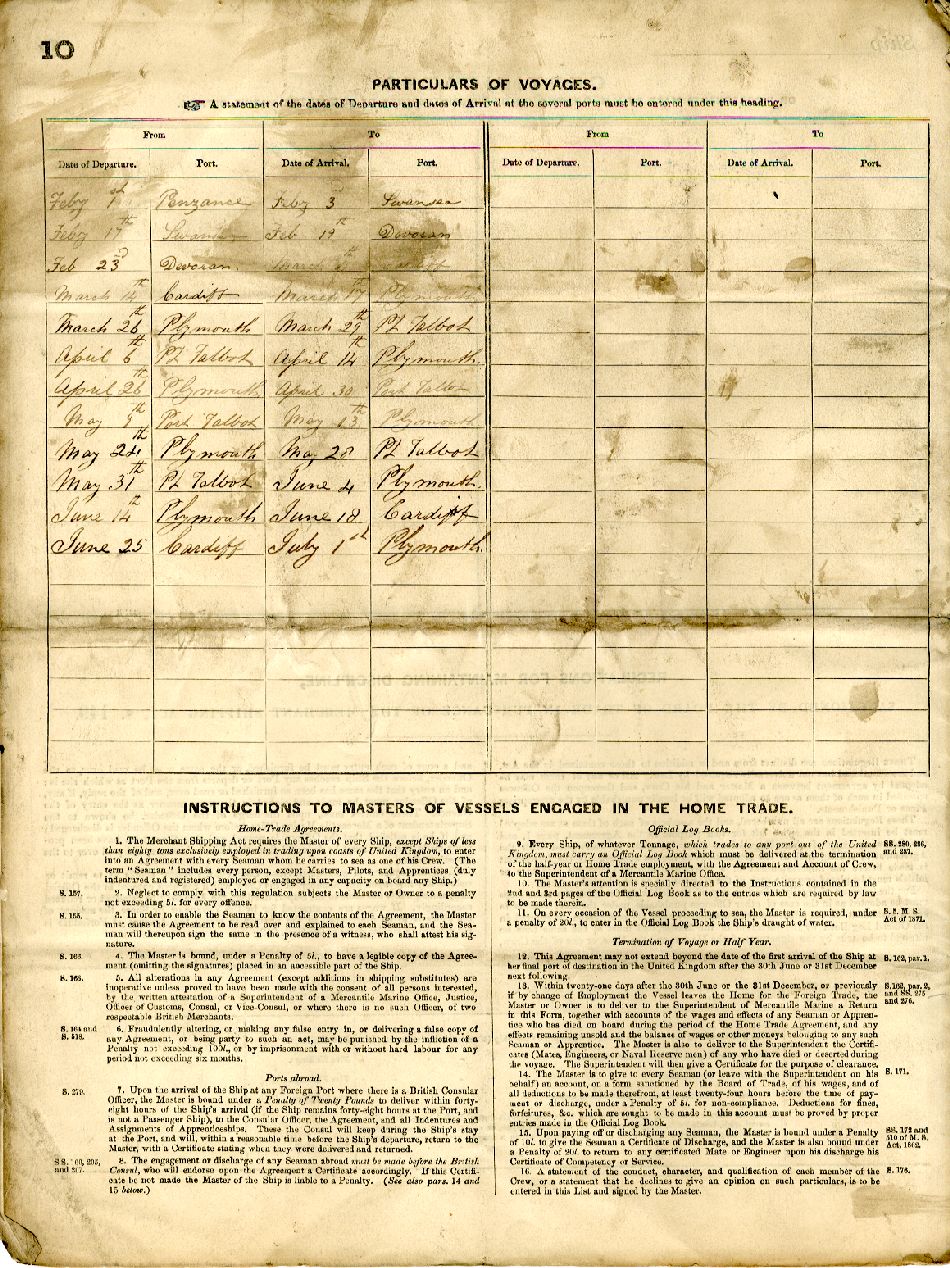 10
PARTICULARS OF VOYAGES.
☞ A statement of the dates of Departure and dates of Arrival at the several ports must be entered under this heading.
From To From To
Date of Departure. Port. Date of Arrival. Port. Date of Departure. Port. Date of Arrival. Port.
Feby 1st Penzance Feby 3 Swansea
Feby 17th Swansea Feb 19th Devoran
Feb 23rd Devoran March Cardiff
March 14th Cardiff March 17th Plymouth
March 26th Plymouth March 29th Pt Talbot
April 6th Pt Talbot April 14th Plymouth
April 26th Plymouth April 30 Port Talbot
May 9th Port Talbot May 13th Plymouth
May 24th Plymouth May 28 Pt Talbot
May 31th Pt Talbot June 4 Plymouth
June 14th Plymouth June 18 Cardiff
June 25 Cardiff July 1st Plymouth
INSTRUCTIONS TO MASTERS OF VESSELS ENGAGED IN THE HOME TRADE.
Home-Trade Agreements.
1. The Merchant Shipping Act requires the Master of every Ship, except Ships of less
than eighty tons exclusively employed in trading upon coasts of United Kingdom, to enter
into an Agreement with every Seaman whom he carries to sea as one of his Crew. (The
term "Seaman" includes every person, except Masters, Pilots, and Apprentices (duly
indentured and registered) employed or engaged in any capacity on board any Ship.)
S. 157. 2. Neglect to comply with this regulation subjects the Master or Owner to a penalty
not exceeding 5l. for every offence.
S. 155. 3. In order to enable the Seamen to know the contents of the Agreement, the Master
must cause the Agreement to be read over and explained to each Seaman, and the Sea-
man will thereupon sign the same in the presence of a witness, who shall attest his sig-
nature.
S. 166. 4. The Master is bound, under a Penalty of 5l., to have a legible copy of the Agree-
ment (omitting the signatures) placed in an accessible part of the Ship.
S. 163. 5. All alterations in any Agreement (except additions in shipping substitutes) are
inoperative unless proved to have been made with the consent of all persons interested,
by the written attestation of a Superintendent of a Mercantile Marine Office, Justice,
Officer of Customs, Consul, or Vice-Consul, or where there is no such Officer, of two
respectable British Merchants.
S. 164 and S. 518. 6. Fraudulently altering, or making any false entry in, or delivering a false copy of
any Agreement, or being party to such an act, may be punished by the infliction of a
Penalty not exceeding 100l., or by imprisonment with or without hard labour for any
period not exceeding six months.
Ports abroad.
S. 279. 7. Upon the arrival of the Ship at any Foreign Port where there is a British Consular
Officer, the Master is bound under a Penalty of Twenty Pounds to deliver within forty-
eight hours of the Ship's arrival (if the Ship remains forty-eight hours at the Port, and
is not a Passenger Ship), to the Consular Officer, the Agreement, and all Indentures and
Assignments of Apprenticeships. These the Consul will keep during the Ship's stay
at the Port, and will, within a reasonable time before the Ship's departure, return to the
Master, with a Certificate stating when they were delivered and returned.
8. The engagement or discharge of any Seaman abroad must be made before the British
Consul, who will endorse upon the Agreement a Certificate accordingly. If this Certifi-
cate be not made the Master of the Ship is liable to a Penalty. (See also pars. 14 and
15 below.)
Official Log Books.
9. Every Ship, of whatever Tonnage, which trades to any port out of the United
Kingdom, must carry an Official Log Book which must be delivered at the termination
of the half-year or Home Trade employment, with the Agreement and Account of Crew,
to the Superintendent of a Mercantile Marine Office.
10. The Master's attention is specially directed to the Instructions contained in the
2nd and 3rd pages of the Official Log Book as to the entries which are required by law
to be made therein.
11. On every occasion of the Vessel proceeding to sea, the Master is required, under
a penalty of 20l., to enter in the Official Log Book the Ship's draught of water. S. 5. M. S. Act of 1871.
Termination of Voyage or Half Year.
12. This Agreement may not extend beyond the date of the first arrival of the Ship at
her final port of destination in the United Kingdom after the 30th June or 31st December
next following. S. 162, par. 1.
13. Within twenty-one days after the 30th June or the 31st December, or previously
if by change of Employment the Vessel leaves the Home for the Foreign Trade, the
Master or Owner is to deliver to the Superintendent of Mercantile Marine a Return
in this Form, together with accounts of the wages and effects of any Seaman or Appren-
tice who has died on board during the period of the Home Trade Agreement, and any
effects remaining unsold and the balance of wages or other moneys belonging to any such
Seaman or Apprentice. The Master is also to deliver to the Superintendent the Certifi-
cates (Mates, Engineers, or Naval Reserve men) of any who have died or deserted during
the voyage. The Superintendent will then give a Certificate for the purpose of clearance. S. 162, par. 2, and SS. 275 and 276.
14. The Master is to give to every Seaman (or leave with the Superintendent on his
behalf) an account, on a form sanctioned by the Board of Trade, of his wages, and of
all deductions to be made therefrom, at least twenty-four hours before the time of pay-
ment or discharge, under a Penalty of 5l. for non-compliance. Deductions for fines,
forfeitures, &c. which are sought to be made in this account must be proved by proper
entries made in the Official Log Book. S. 171.
15. Upon paying off or discharging any Seaman, the Master is bound under a Penalty
of 10l. to give the Seaman a Certificate of Discharge, and the Master is also bound under
a Penalty of 20l. to return to any certificated Mate or Engineer upon his discharge his
Certificate of Competency or Service.
16. A statement of the conduct, character, and qualification of each member of the
Crew, or a statement that he declines to give an opinion on such particulars, is to be
entered in this List and signed by the Master. S. 176.